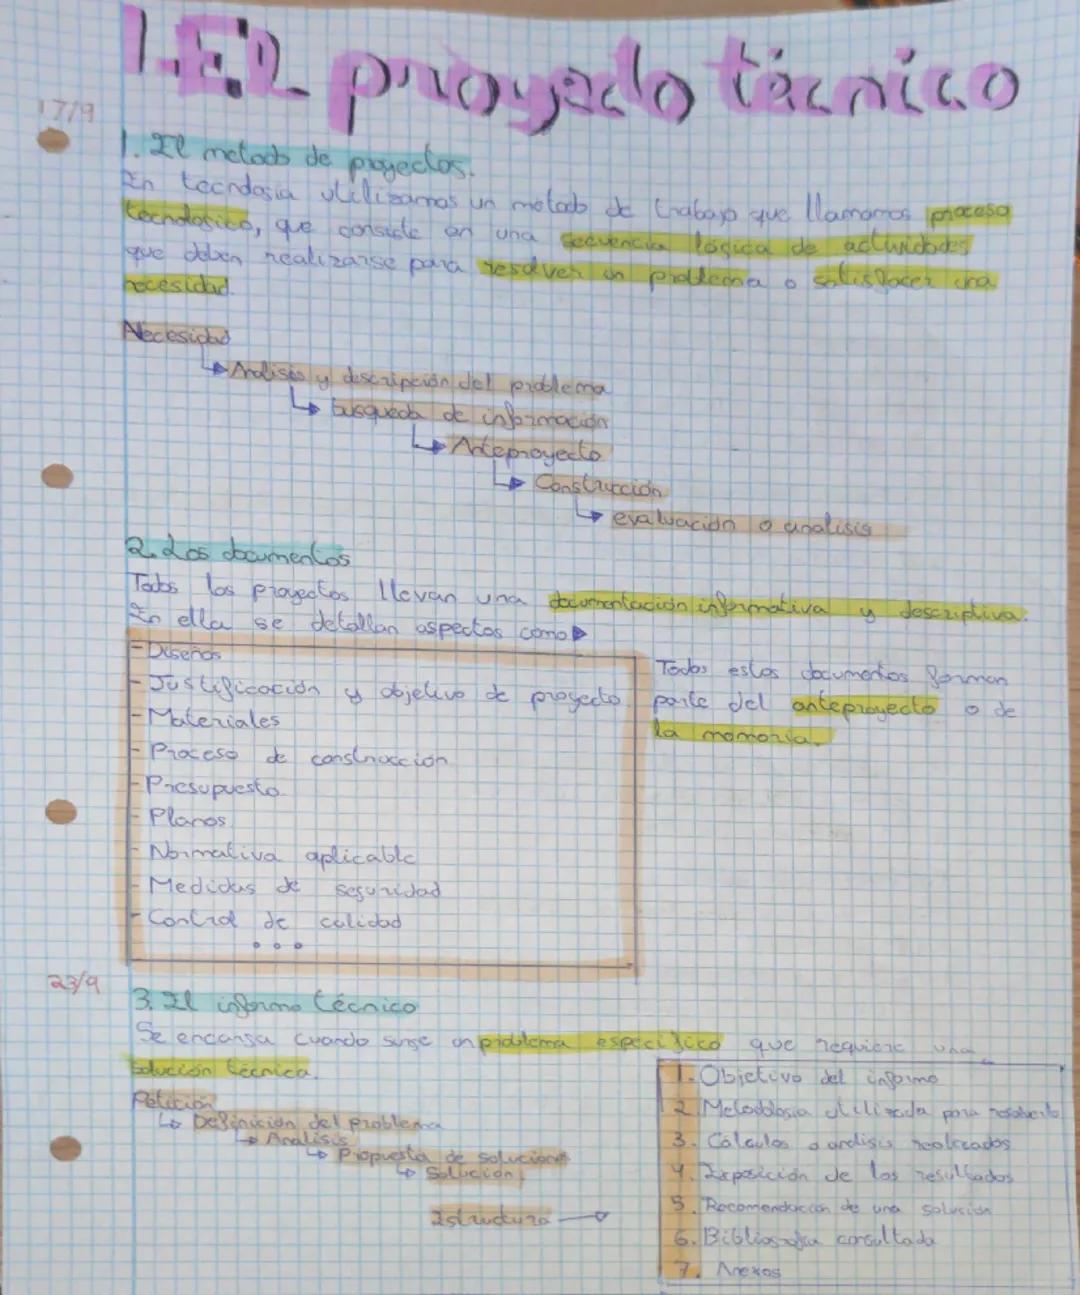 1. EL proyecto técnico
17/9
1. El metodo de proyectos.
En tecnología utilizamos un metodo de trabajo que llamamos proceso
tecnologico, que consiste en una secuencia lógica de actividades
que deben realizarse para resolver un problema o satisfacer una
necesidad.
Necesidad
Analisis y descripción del problema
busqueda de información
Anteproyecto
Construcción
evaluación o analisis
2. Los documentos
Todos los proyectos llevan una documentación informativa y descriptiva.
En ella se detallan aspectos como
- Diseños
- Justificación y objetivo de proyecto
- Materiales
- Proceso de construcción
- Presupuesto
- Planos
- Normativa aplicable
- Medidas de seguridad
- Control de calidad
...
Todos estos documentos forman
parte del anteproyecto o de
la memoria.
23/9
3. El informe técnico
Se encarga cuando surge un problema especifico que requiere una
solución técnica.
Petición
Definición del problema
Analisis
Propuesta de soluciones
Solución
Estructura
1. Objetivo del informe
2. Metodología utilizada para resolverlo
3. Cálculos o analisis realizados
4. Exposición de los resultados
5. Recomendación de una solución
6. Bibliografia consultada
7. Anexos